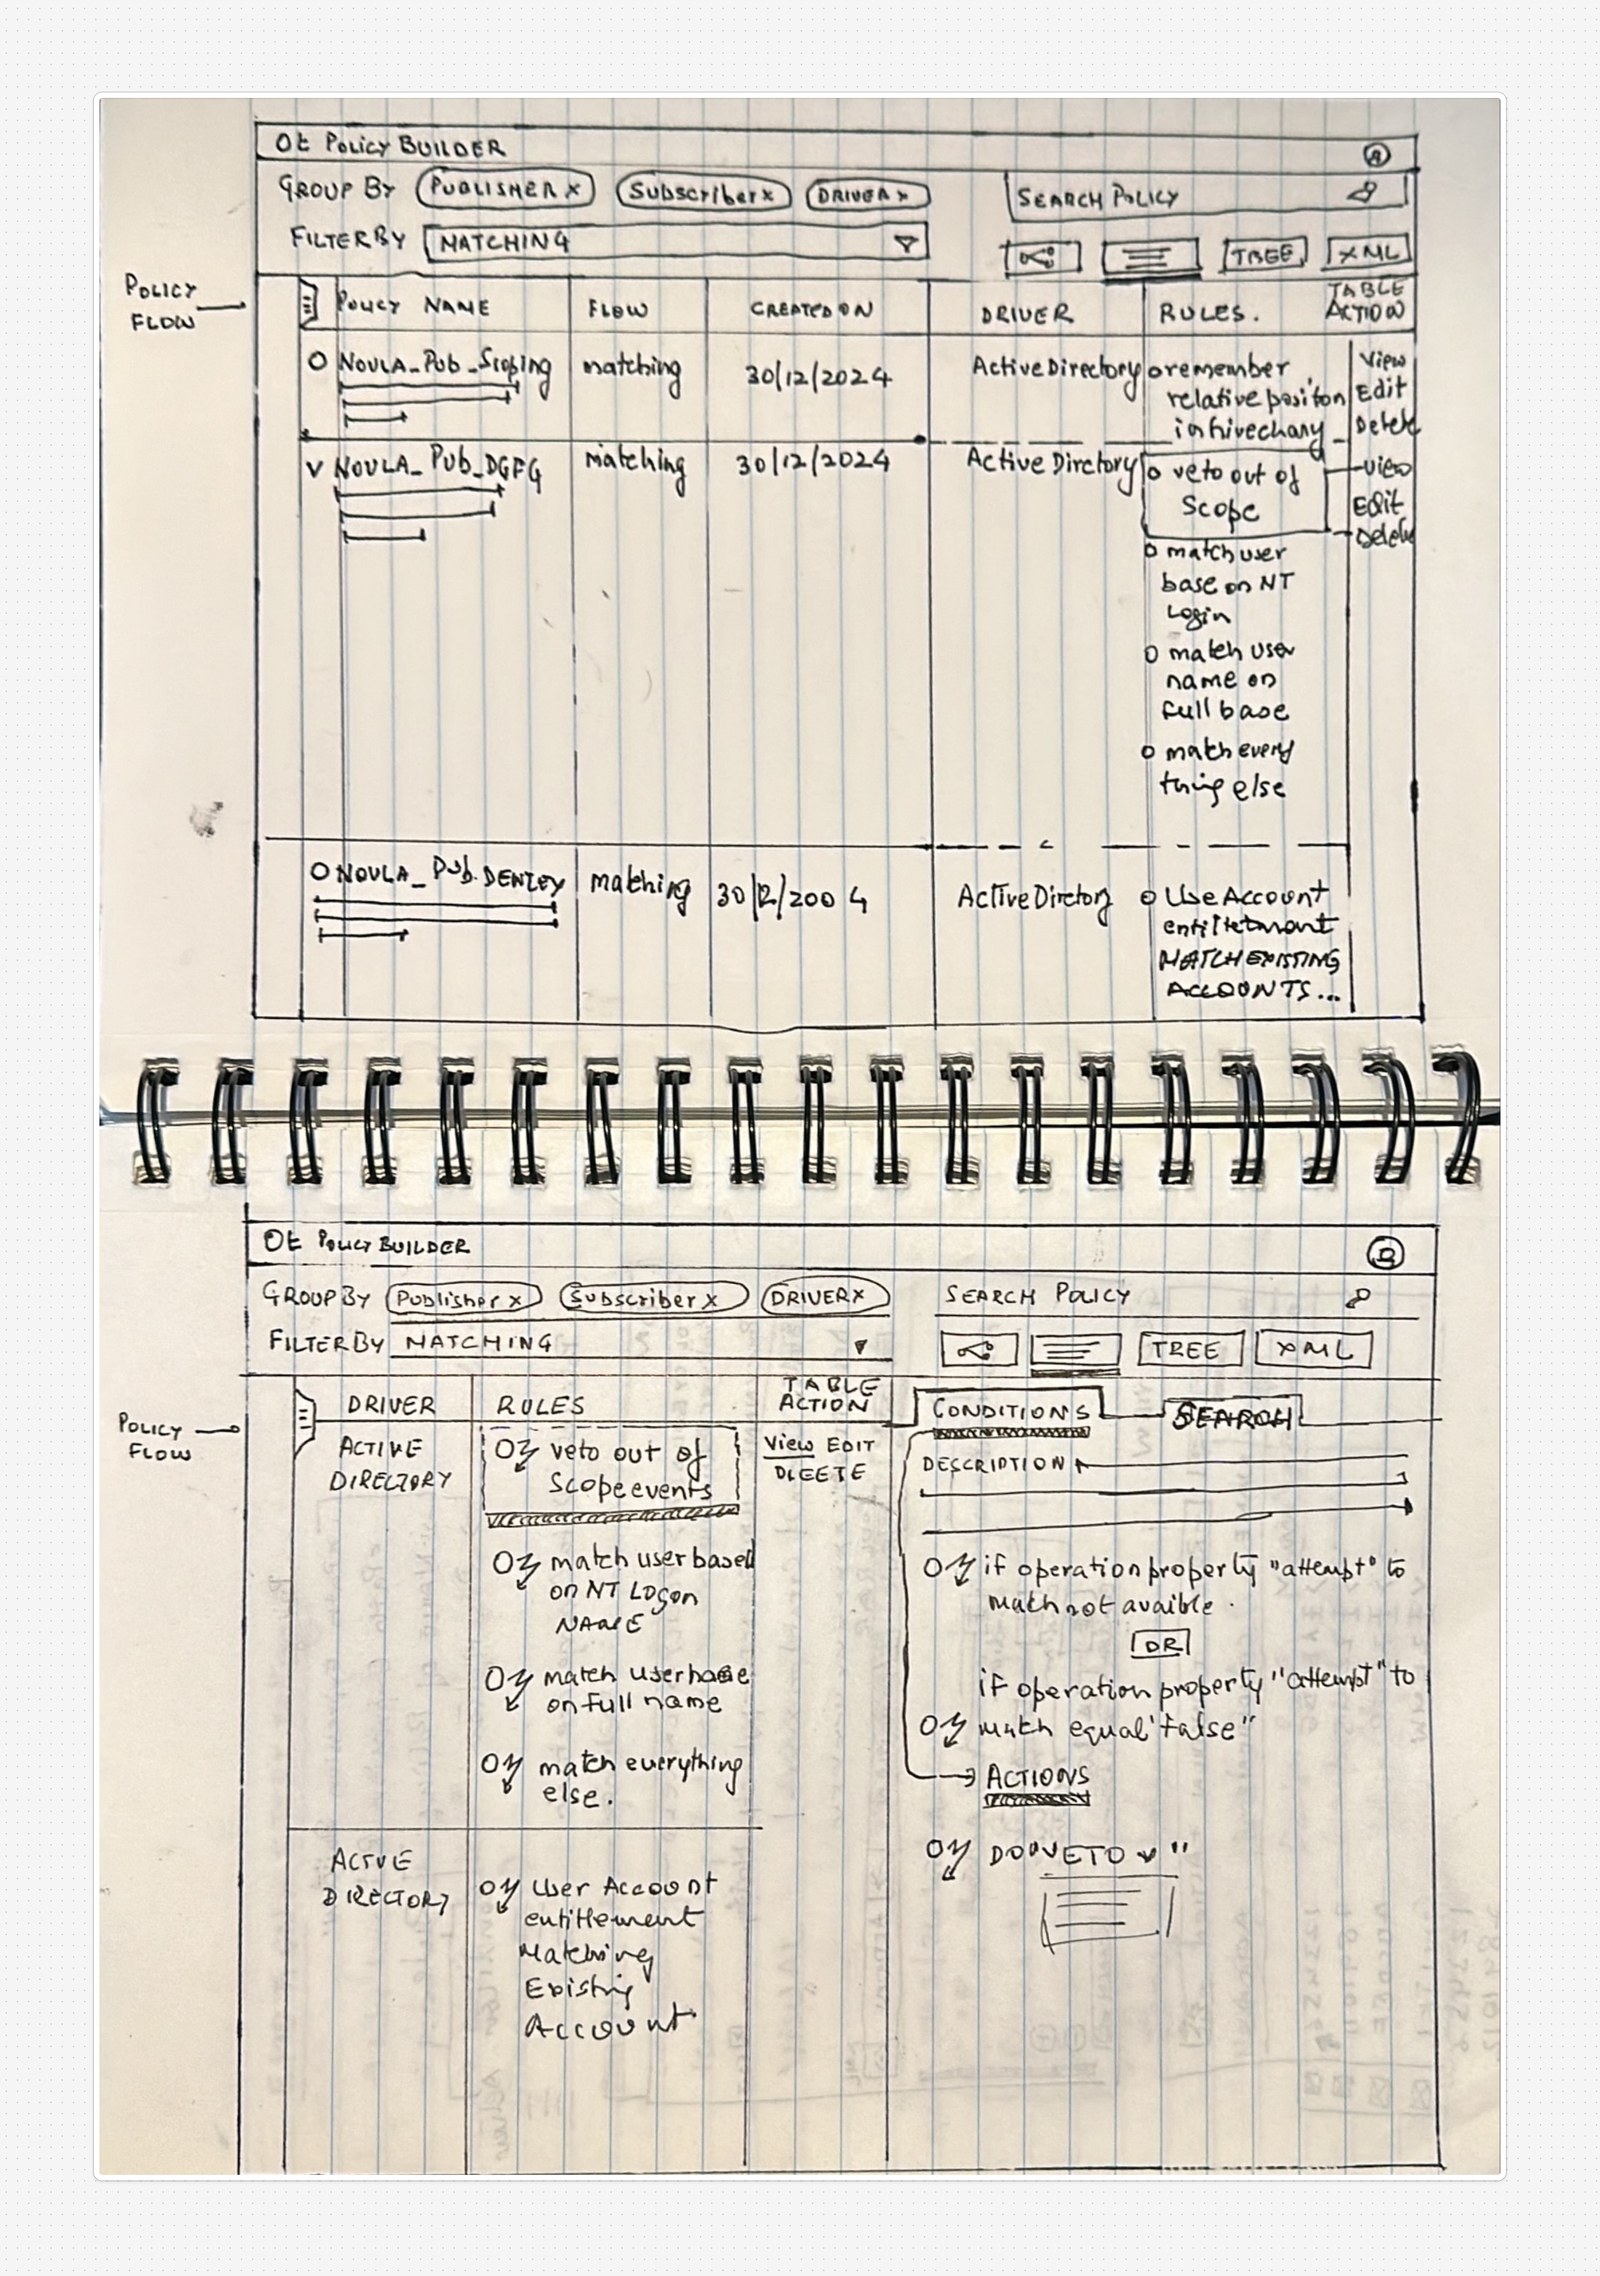 Ot Policy BUILDER
GROUP BY PUBLISHER x Subscriber x DRIVER x SEARCH POLICY
FILTER BY MATCHING
TREE XML
POLICY FLOW
POLICY NAME FLOW CREATED ON DRIVER RULES. TABLE ACTION
NOULA_Pub_Scoping matching 30/12/2024 Active Directory o remember View
relative positon Edit
in Delete
v NOULA_Pub_DGFG matching 30/12/2024 Active Dirctory o veto out of View
Scope Edit
Delete
o match user
base on NT
Login
o match user
name on
full base
o match every
thing else
O NOULA_Pub. matching 30/12/200 4 Active Dirctory o Use Account
MATCH EXISTING
ACCOUNTS...
Ot Policy BUILDER
GROUP BY Publisher x Subscriber x DRIVER x SEARCH POLICY
FILTER BY MATCHING
TREE XML
POLICY FLOW
DRIVER RULES TABLE ACTION CONDITIONS SEARCH
ACTIVE DIRECTORY
veto out of
Scope events
View EDIT
DLEETE
DESCRIPTION
match user based
on NT Logon
NAME
if operation property "attempt" to
match not avaible.
OR
match user base
on full name
if operation property "attempt" to
match equal "false"
match everything
else.
ACTIONS
ACTVE DIRECTORY
DO VETO
User Account
entitlement
Matching
Existing
Account